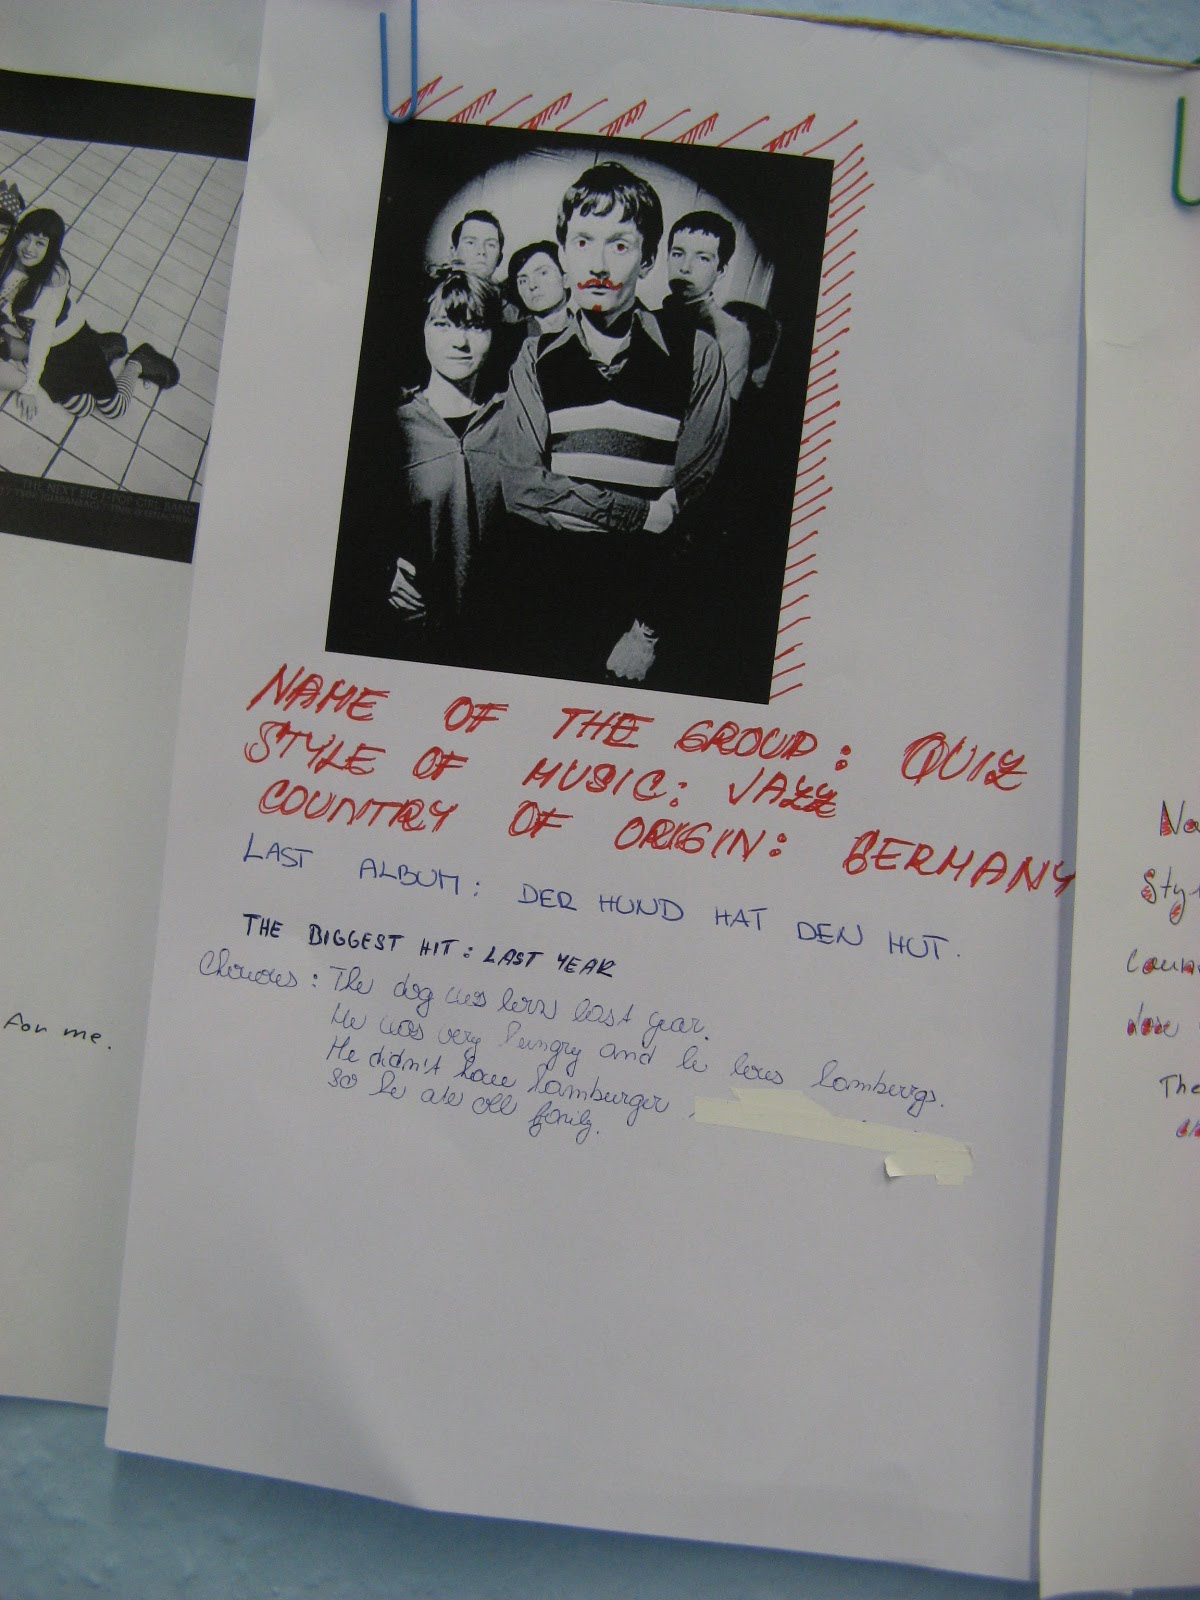 THE NEXT BIG J-POP GIRL BAND
For me.
NAME OF THE GROUP: QUIZ
STYLE OF MUSIC: JAZZ
COUNTRY OF ORIGIN: GERMANY
LAST ALBUM: DER HUND HAT DEN HUT.
THE BIGGEST HIT: LAST YEAR
The dog was born last year.
He was very hungry and he
He didn't have hamburger
So he ate all family.
No
Sty
Coun
The